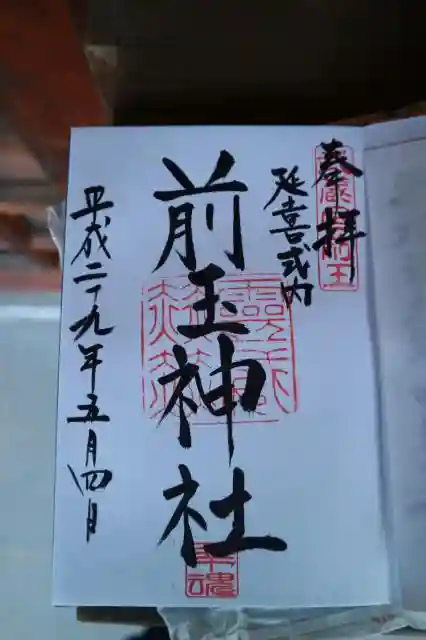 奉拝
延喜式内
前玉神社
平成二十九年五月四日
幸魂